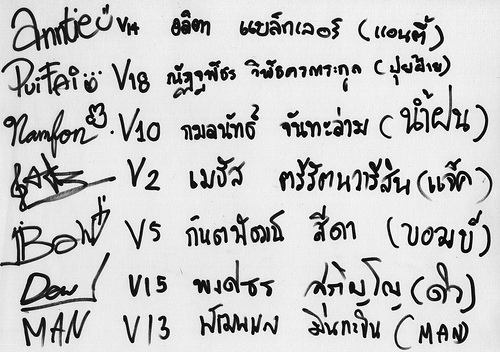 Anntie V14 อลิตา แบล็กเลอร์ (แอนตี้)
PuiFai V18 ณัฏฐพัชร (ปุยฝ้าย)
Namfon V10 กมลนัทธ์ จันทะล่าม (น้ำฝน)
V2 เมธัส ตรีรัตนวารีสิน (แจ๊ค)
Bow V5 กันตพัฒน์ สีดา (บอมบ์)
Dew V15 พงศธร สุภิญโญ (ดิว)
MAN V13 พัฒนพล มินทะขิน (MAN)